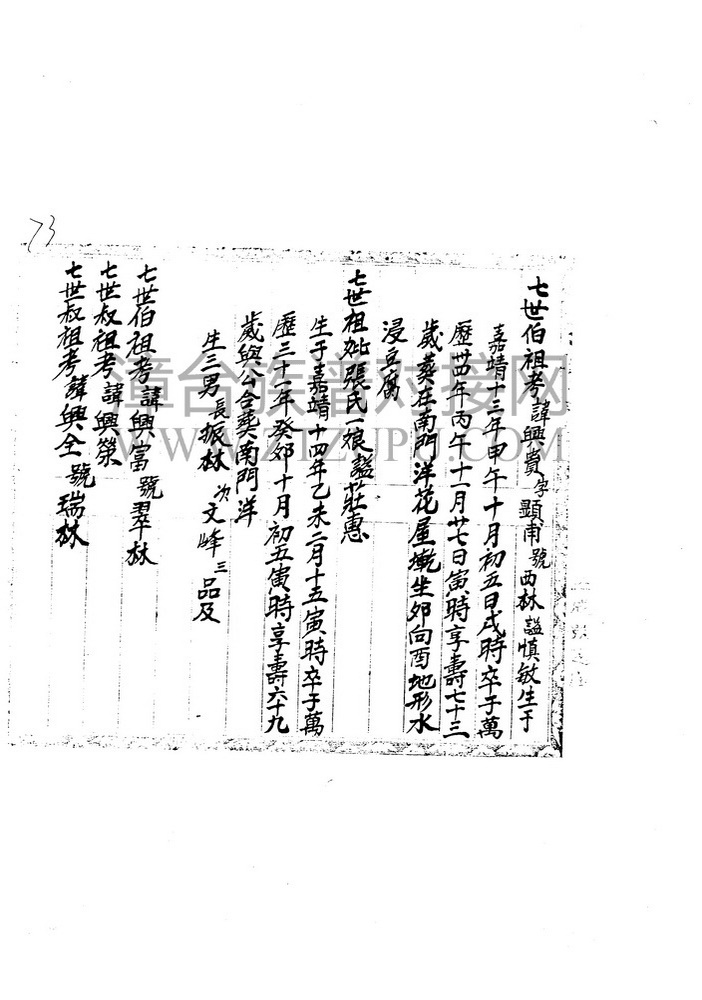 73
七世伯祖考諱興貴字顯甫號西林謚慎敏生于
嘉靖十三年甲午十月初五日戌時卒于萬
歷卅四年丙午十一月廿七日寅時享壽七十三
歲葬在南門洋花屋墘坐卯向酉地形水
浸豆腐
七世祖妣張氏一娘謚莊惠
生于嘉靖十四年乙未二月十五寅時卒于萬
歷三十一年癸卯十月初五寅時享壽六十九
歲與公合葬南門洋
生三男長振林次文峰三品及
七世伯祖考諱興富號翠林
七世叔祖考諱興策
七世叔祖考諱興全號瑞林
漳台族谱对接网
WWW.ZTZUPU.COM